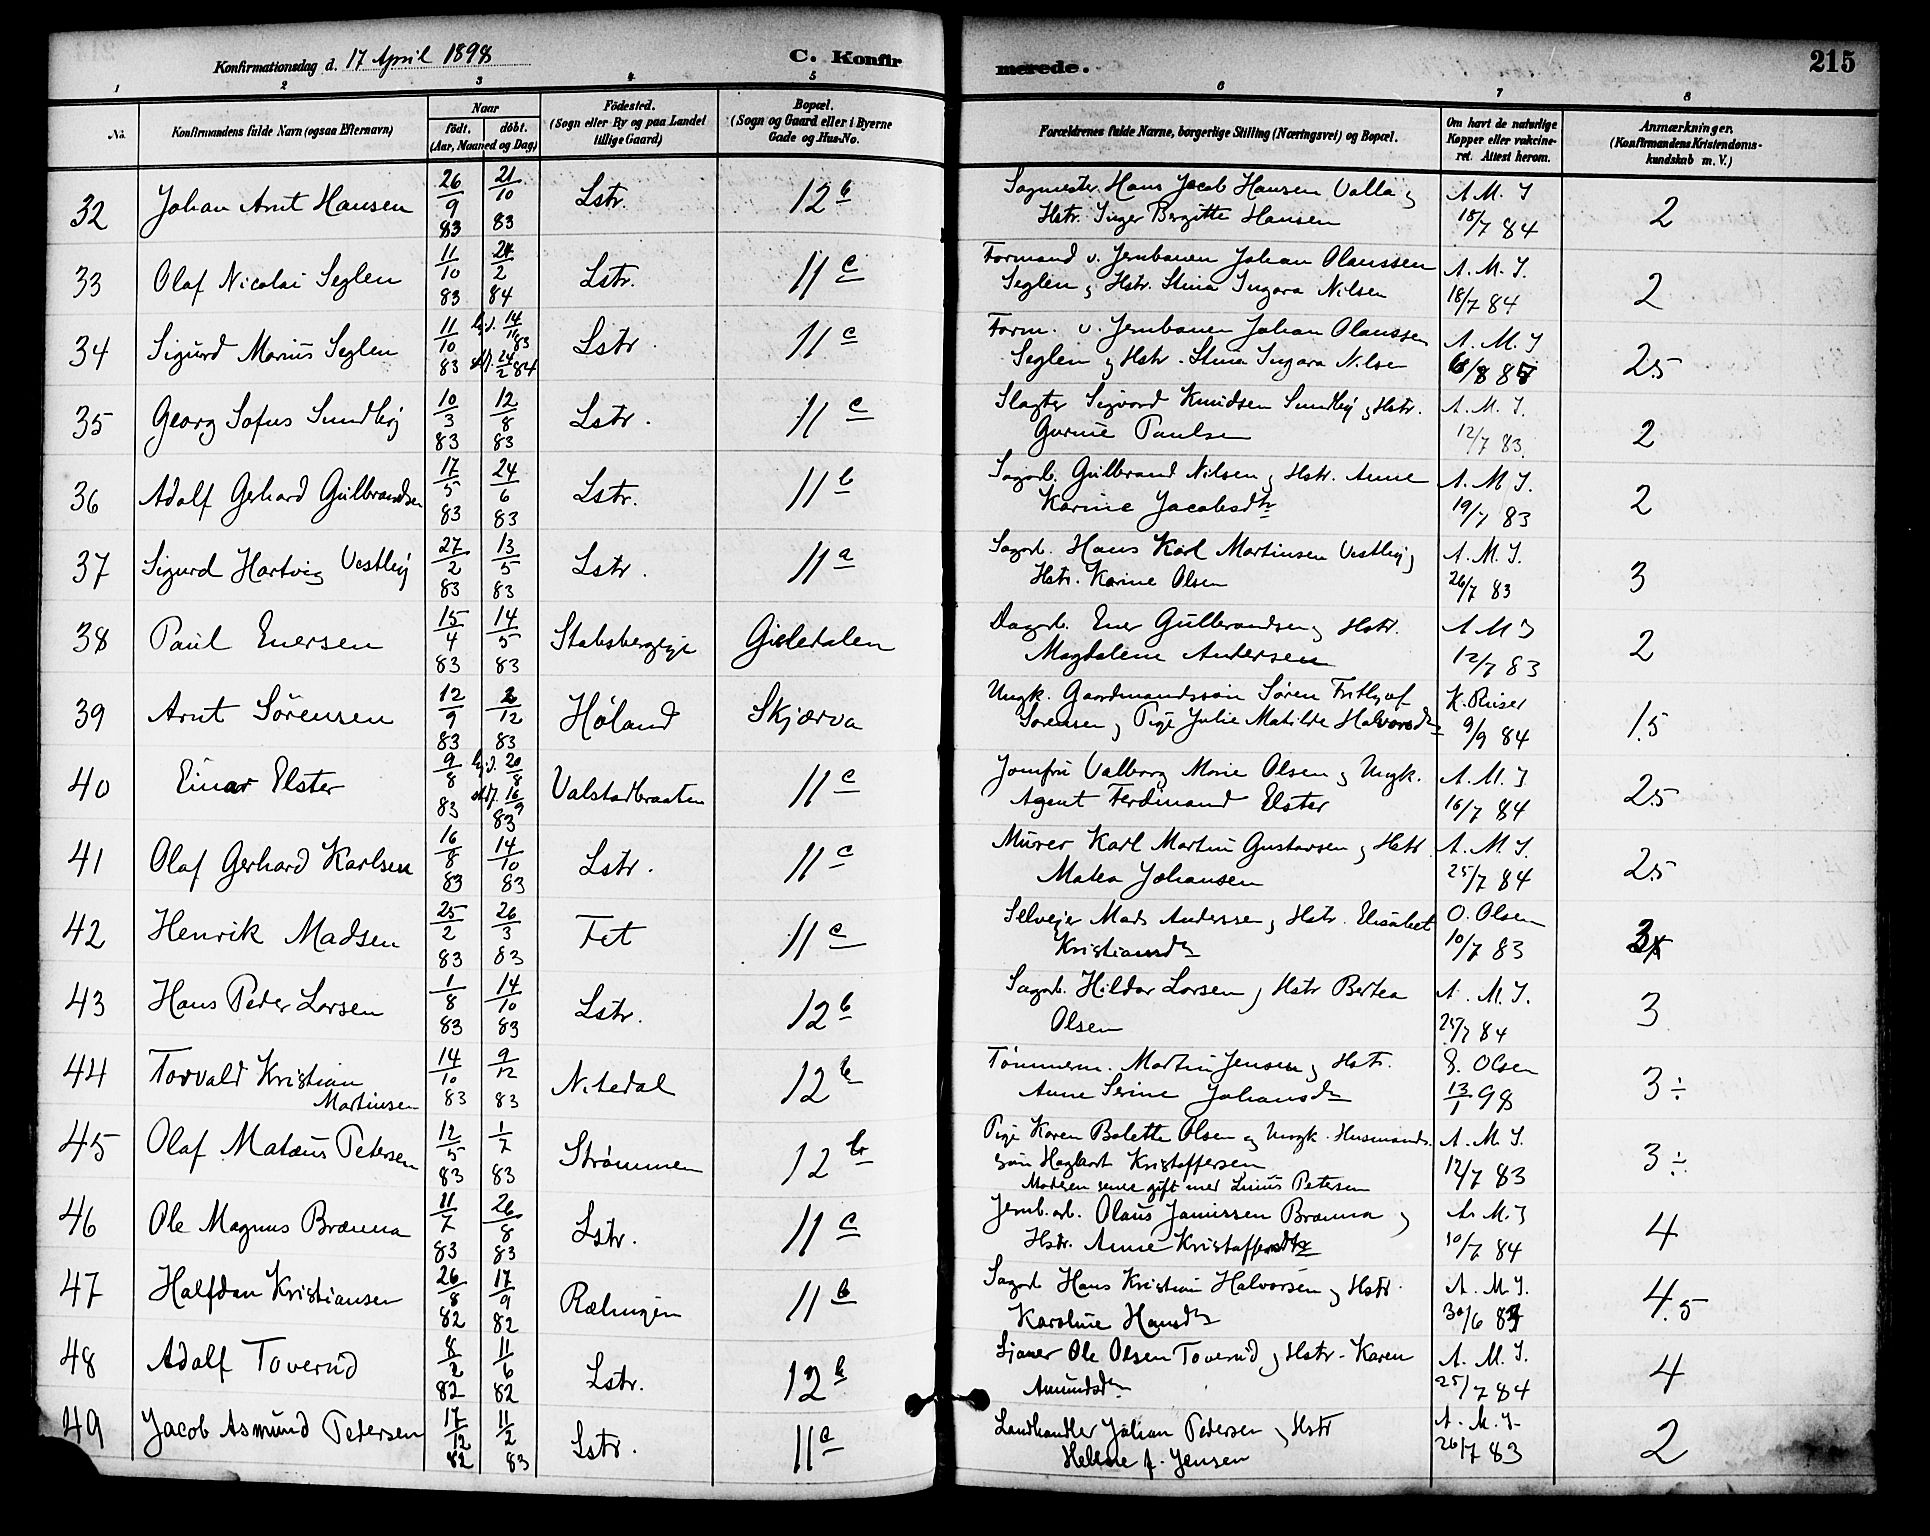 Konfirmationsdag d. 17 April 1898
C. Konfir
merede.
215
1 2 3 4 5 6 7 8
No.
Konfirmandens fulde Navn (ogsaa Efternavn)
Naar
födt. döbt.
(Aar, Maaned og Dag)
Födested.
(Sogn eller By og paa Landet
tillige Gaard)
Bopæl.
(Sogn og Gaard eller i Byerne
Gade og Hus-No.
Forældrenes fulde Navne, borgerlige Stilling (Næringsvei) og Bopæl.
Om havt de naturlige
Kopper eller vakcine-
ret. Attest herom.
Anmærkninger.
(Konfirmandens Kristendoms-
kundskab m. V.)
32 Johan Arnt Hansen 26/9 83 21/10 83 Lstr. 12 b Sagmester Hans Jacob Hansen Valla og
Hstr. Inger Bergitte Hansen A. M. J 18/7 84 2
33 Olaf Nicolai Seglen 11/10 83 24/2 84 Lstr. 11 c Formand v. Jernbanen Johan Olaussen
Seglen og Hstr. Stina Ingara Nilsen A. M. J. 18/7 84 2
34 Sigurd Marius Seglen 11/10 83 hjd. 14/11 83 stf. 24/2 84 Lstr. 11 c Form. v. Jernbanen Johan Olaussen
Seglen og Hstr. Stina Ingara Nilsen A. M. J 25
35 Georg Sofus Sundbÿ 10/3 83 12/8 83 Lstr. 11 c Slagter Sigvard Knudsen Sundbÿ og Hstr.
Gurine Paulsen A. M. J. 12/7 83. 2
36 Adolf Gerhard Gulbrandsen 17/5 83 24/6 83 Lstr. 11 b Sagarb. Gulbrand Nilsen og Hstr. Anne
Karine Jacobsdtr A. M J. 19/7 83 2
37 Sigurd Hartvig Vestbÿ 27/2 83 13/5 83 Lstr. 11 a Sagarb. Hans Karl Martinsen Vestbÿ og
Hstr. Karine Olsen A. M. J. 26/7 83 3
38 Paul Enersen 15/4 83 14/5 83 Stabsbergeje Gieledalen Dagarb. Ener Gulbrandsen og Hstr.
Magdalene Andersen A M J 12/7 83 2
39 Arnt Sörensen 12/9 83 2/12 83 Höland Skjærva Ungk. Gaardmandssön Sören Frithjof
Sörensen og Pige Julie Matilde Halvorsdtr K. Riiser 9/9 84 1.5
40 Einar Elster 9/8 83 hjd. 20/8 stf. 16/9 83 Valstadbraaten 11 c Jomfru Valborg Marie Olsen og Ungk.
Agent Ferdinand Elster A. M. J 16/7 84 25
41 Olaf Gerhard Karlsen 16/8 83 14/10 83 Lstr. 11 c Murer Karl Martin Gustavsen og Hstr.
Matea Johansen A. M. J. 25/7 84 25
42 Henrik Madsen 25/2 83 26/3 83 Fet 11 c Selvejer Mads Anderssen og Hstr. Elisabet
Kristiansdtr O. Olsen 10/7 83 3
43 Hans Peder Larsen 1/8 83 14/10 83 Lstr. 12 b Sagarb. Hildor Larsen og Hstr Bertea
Olsen A. M. J. 25/7 84 3
44 Torvald Kristian
Martinsen 14/10 83 9/12 83 Nitedal 12 b Tömmerm. Martin Jensen og Hstr.
Anne Serine Johansdtr Olsen 13/1 98 3 ÷
45 Olaf Matæus Petersen 12/5 83 1/7 83 Strömmen 12 b Pige Karen Bolette Olsen og Ungk. Husmands-
sön Hagbart Kristoffersen
Moderen senere gift med Linius Petersen A. M. J. 12/7 83 3 ÷
46 Ole Magnus Brænna 11/7 83 26/8 83 Lstr. 11 c Jernb. arb. Olaus Janussen Brænna og
Hstr. Anne Kristoffersdtr A. M. J 10/7 84 4
47 Halfdan Kristiansen 26/8 82 17/9 82 Rælingen 11 b Sagarb Hans Kristian Halvorsen og Hstr.
Karoline Hansdtr A. M J. 30/6 83 4.5
48 Adolf Toverud 8/2 82 11/6 82 Lstr. 12 b Ole Olsen Toverud og Hstr. Karen
Amundsdtr A. M. J. 25/7 84 4
49 Jacob Asmund Pedersen 17/12 82 11/2 83 Lstr. 11 a Landhandler Johan Pedersen og Hstr
Helene f. Jensen A. M. J. 26/7 83 2